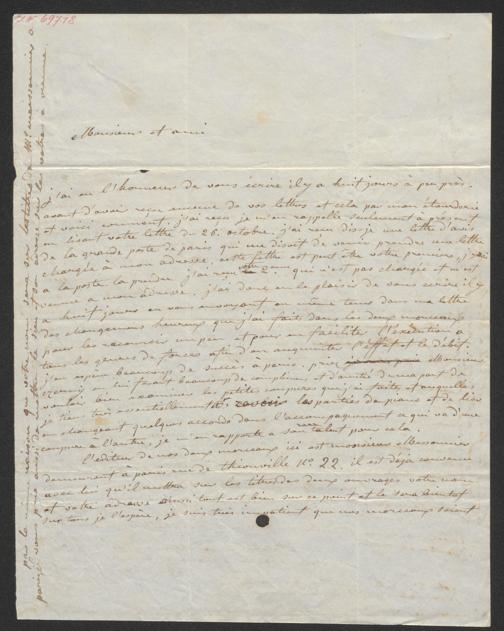 N 69718
Monsieur et ami
j'ai eu l'honneur de vous écrire il y a huit jours à peu près.
avant d'avoir reçu aucune de vos lettres et cela par mon étourderie
et voici comment, j'ai reçu je m'en rappelle seulement à présent
en lisant votre lettre du 26. octobre. j'ai reçu dis-je une lettre d'avis
de la grande poste de paris qui me disoit de venir prendre une lettre
chargée à mon adresse. cette lettre est peut être votre première, j'irai
à la poste la prendre j'ai reçu votre 2 qui n'est pas chargée et m'est
venue à mon adresse. j'ai donc eu le plaisir de vous écrire il y
a huit jours en vous envoyant en même tems dans ma lettre
des changemens heureux que j'ai fait dans les deux morceaux
pour les raccourcir un peu et pour en faciliter l'exécution à
tous les genres de forces afin d'en augmenter l'effet et le débit.
j'en espère beaucoup de succès à paris. priez Monsieur
czerni en lui faisant beaucoup de complimens et d'amitié de ma part de
vouloir bien raccourcir les petites coupures que j'ai faites et auxquelles
je tiens très essentiellement et revoir les parties de piano et de lier
en changeant quelques accords dans l'accompagnement ce qui va d'une
coupure à l'autre, je m'en rapporte à son talent pour cela.
l'éditeur de nos deux morceaux ici est monsieur Messonnier
demeurant à paris rue de thionville No 22. il est déjà convenu
avec lui qu'il mettra sur les titres des deux ouvrages votre nom
et votre adresse ainsi tout est bien sur ce point et le sera bientôt
sur tous je l'espère, je suis très impatient que nos morceaux soient
par la même raison que votre nom sera sur les titres de Mr messonnier à
paris, vous prie aussi de mettre le sien et son adresse sur la votre à vienne